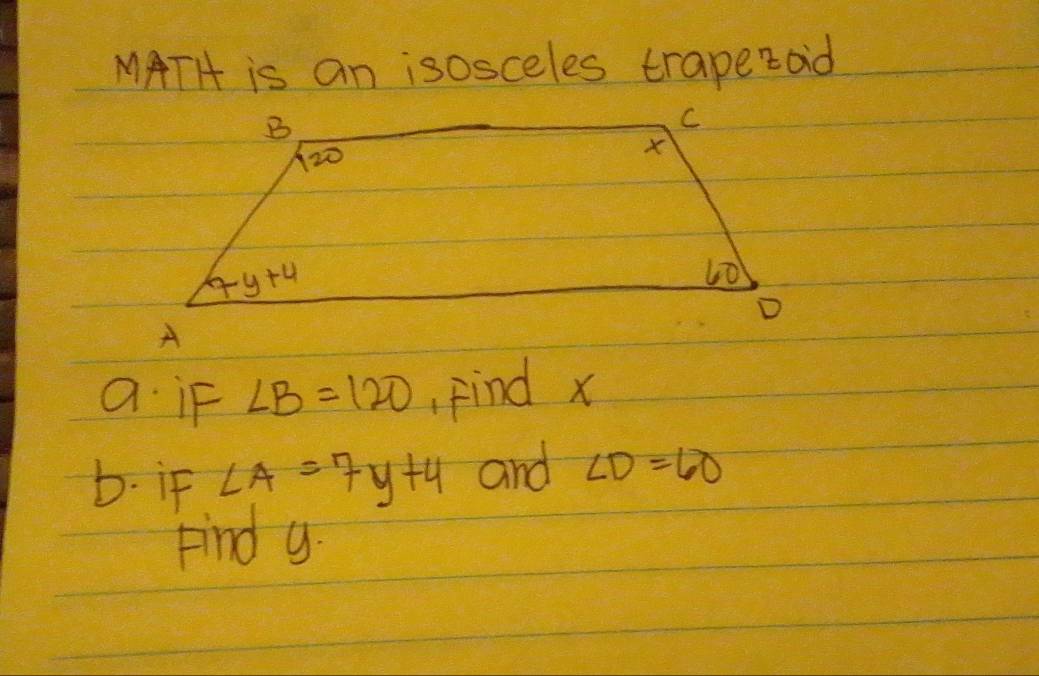 MATH is an isosceles trapezoid
B C
120 x
7y+4 60
A D
a. iF ∠B = 120, Find x
b. iF ∠A = 7y+4 and ∠D = 60
Find y.